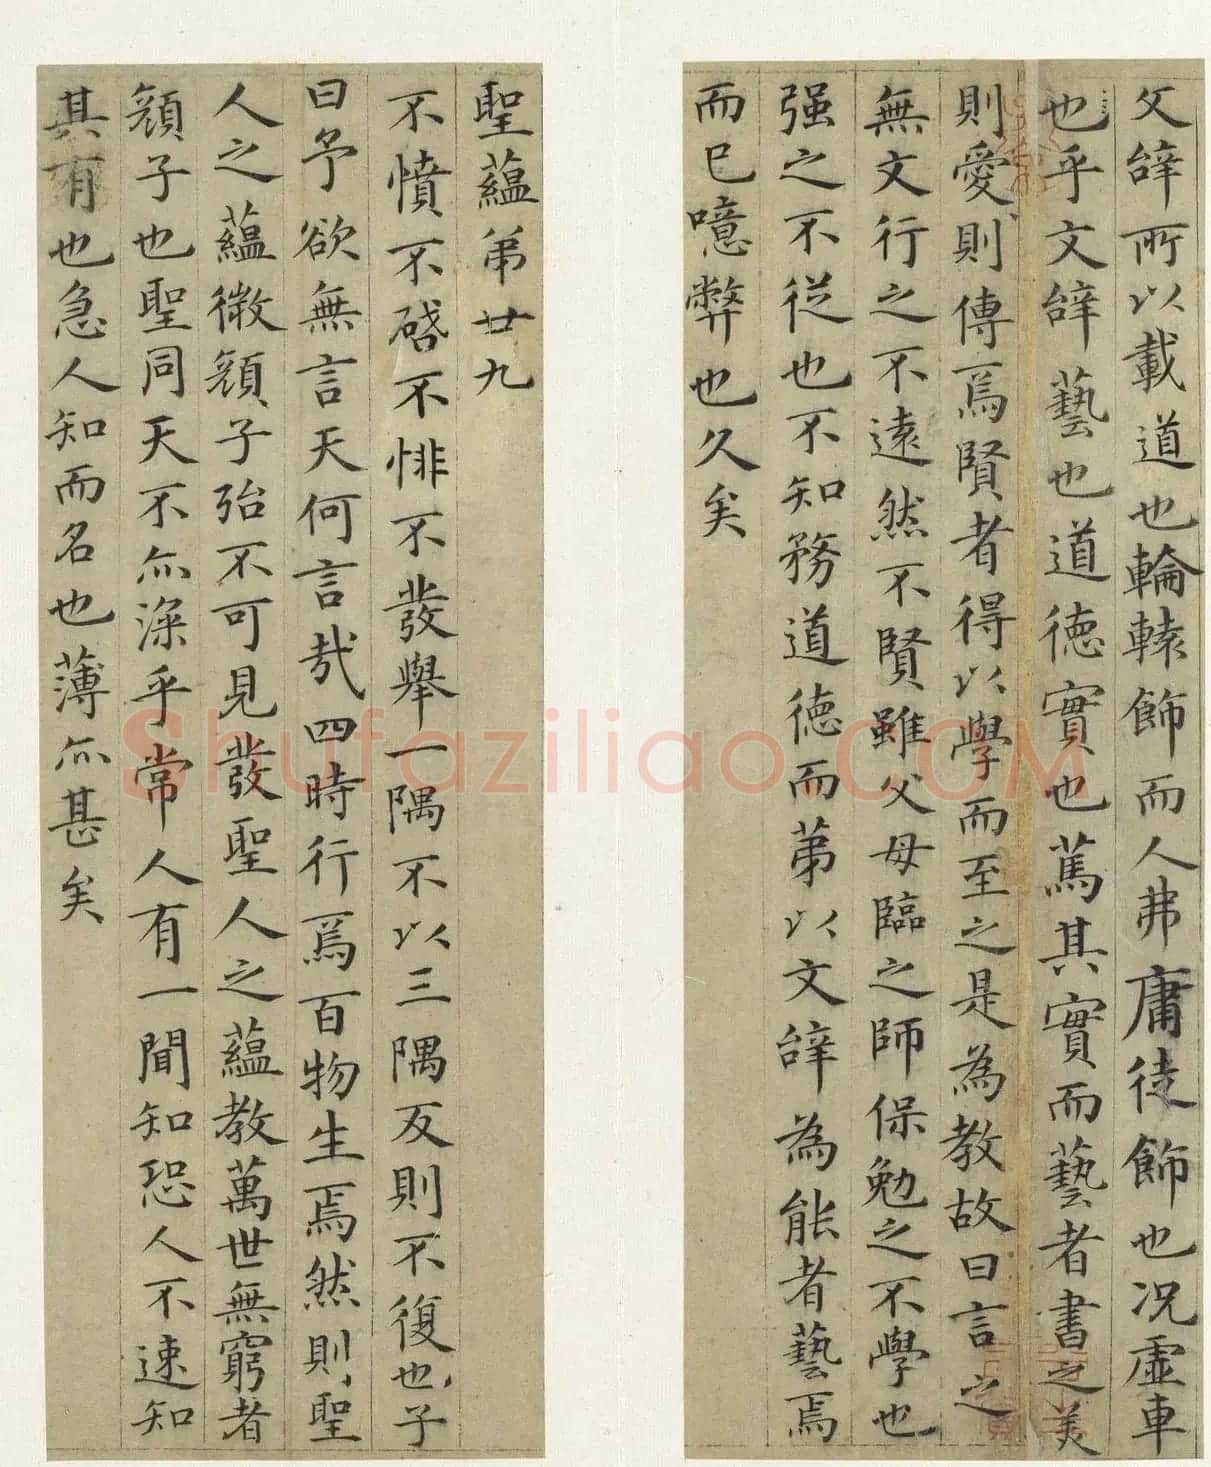 文辝所以載道也輪轅飾而人弗庸徒飾也况虛車
也乎文辝藝也道徳實也篤其實而藝者書之美
則愛則傳焉賢者得以學而至之是為教故曰言之
無文行之不遠然不賢雖父母臨之師保勉之不學也
强之不從也不知務道徳而苐以文辝為能者藝焉
而已噫弊也久矣
聖蘊苐廿九
不憤不啓不悱不發舉一隅不以三隅反則不復也子
曰予欲無言天何言哉四時行焉百物生焉然則聖
人之蘊微顔子殆不可見發聖人之蘊教萬世無窮者
顔子也聖同天不亦深乎常人有一聞知恐人不速知
其有也急人知而名也薄亦甚矣
Shufaziliao.COM